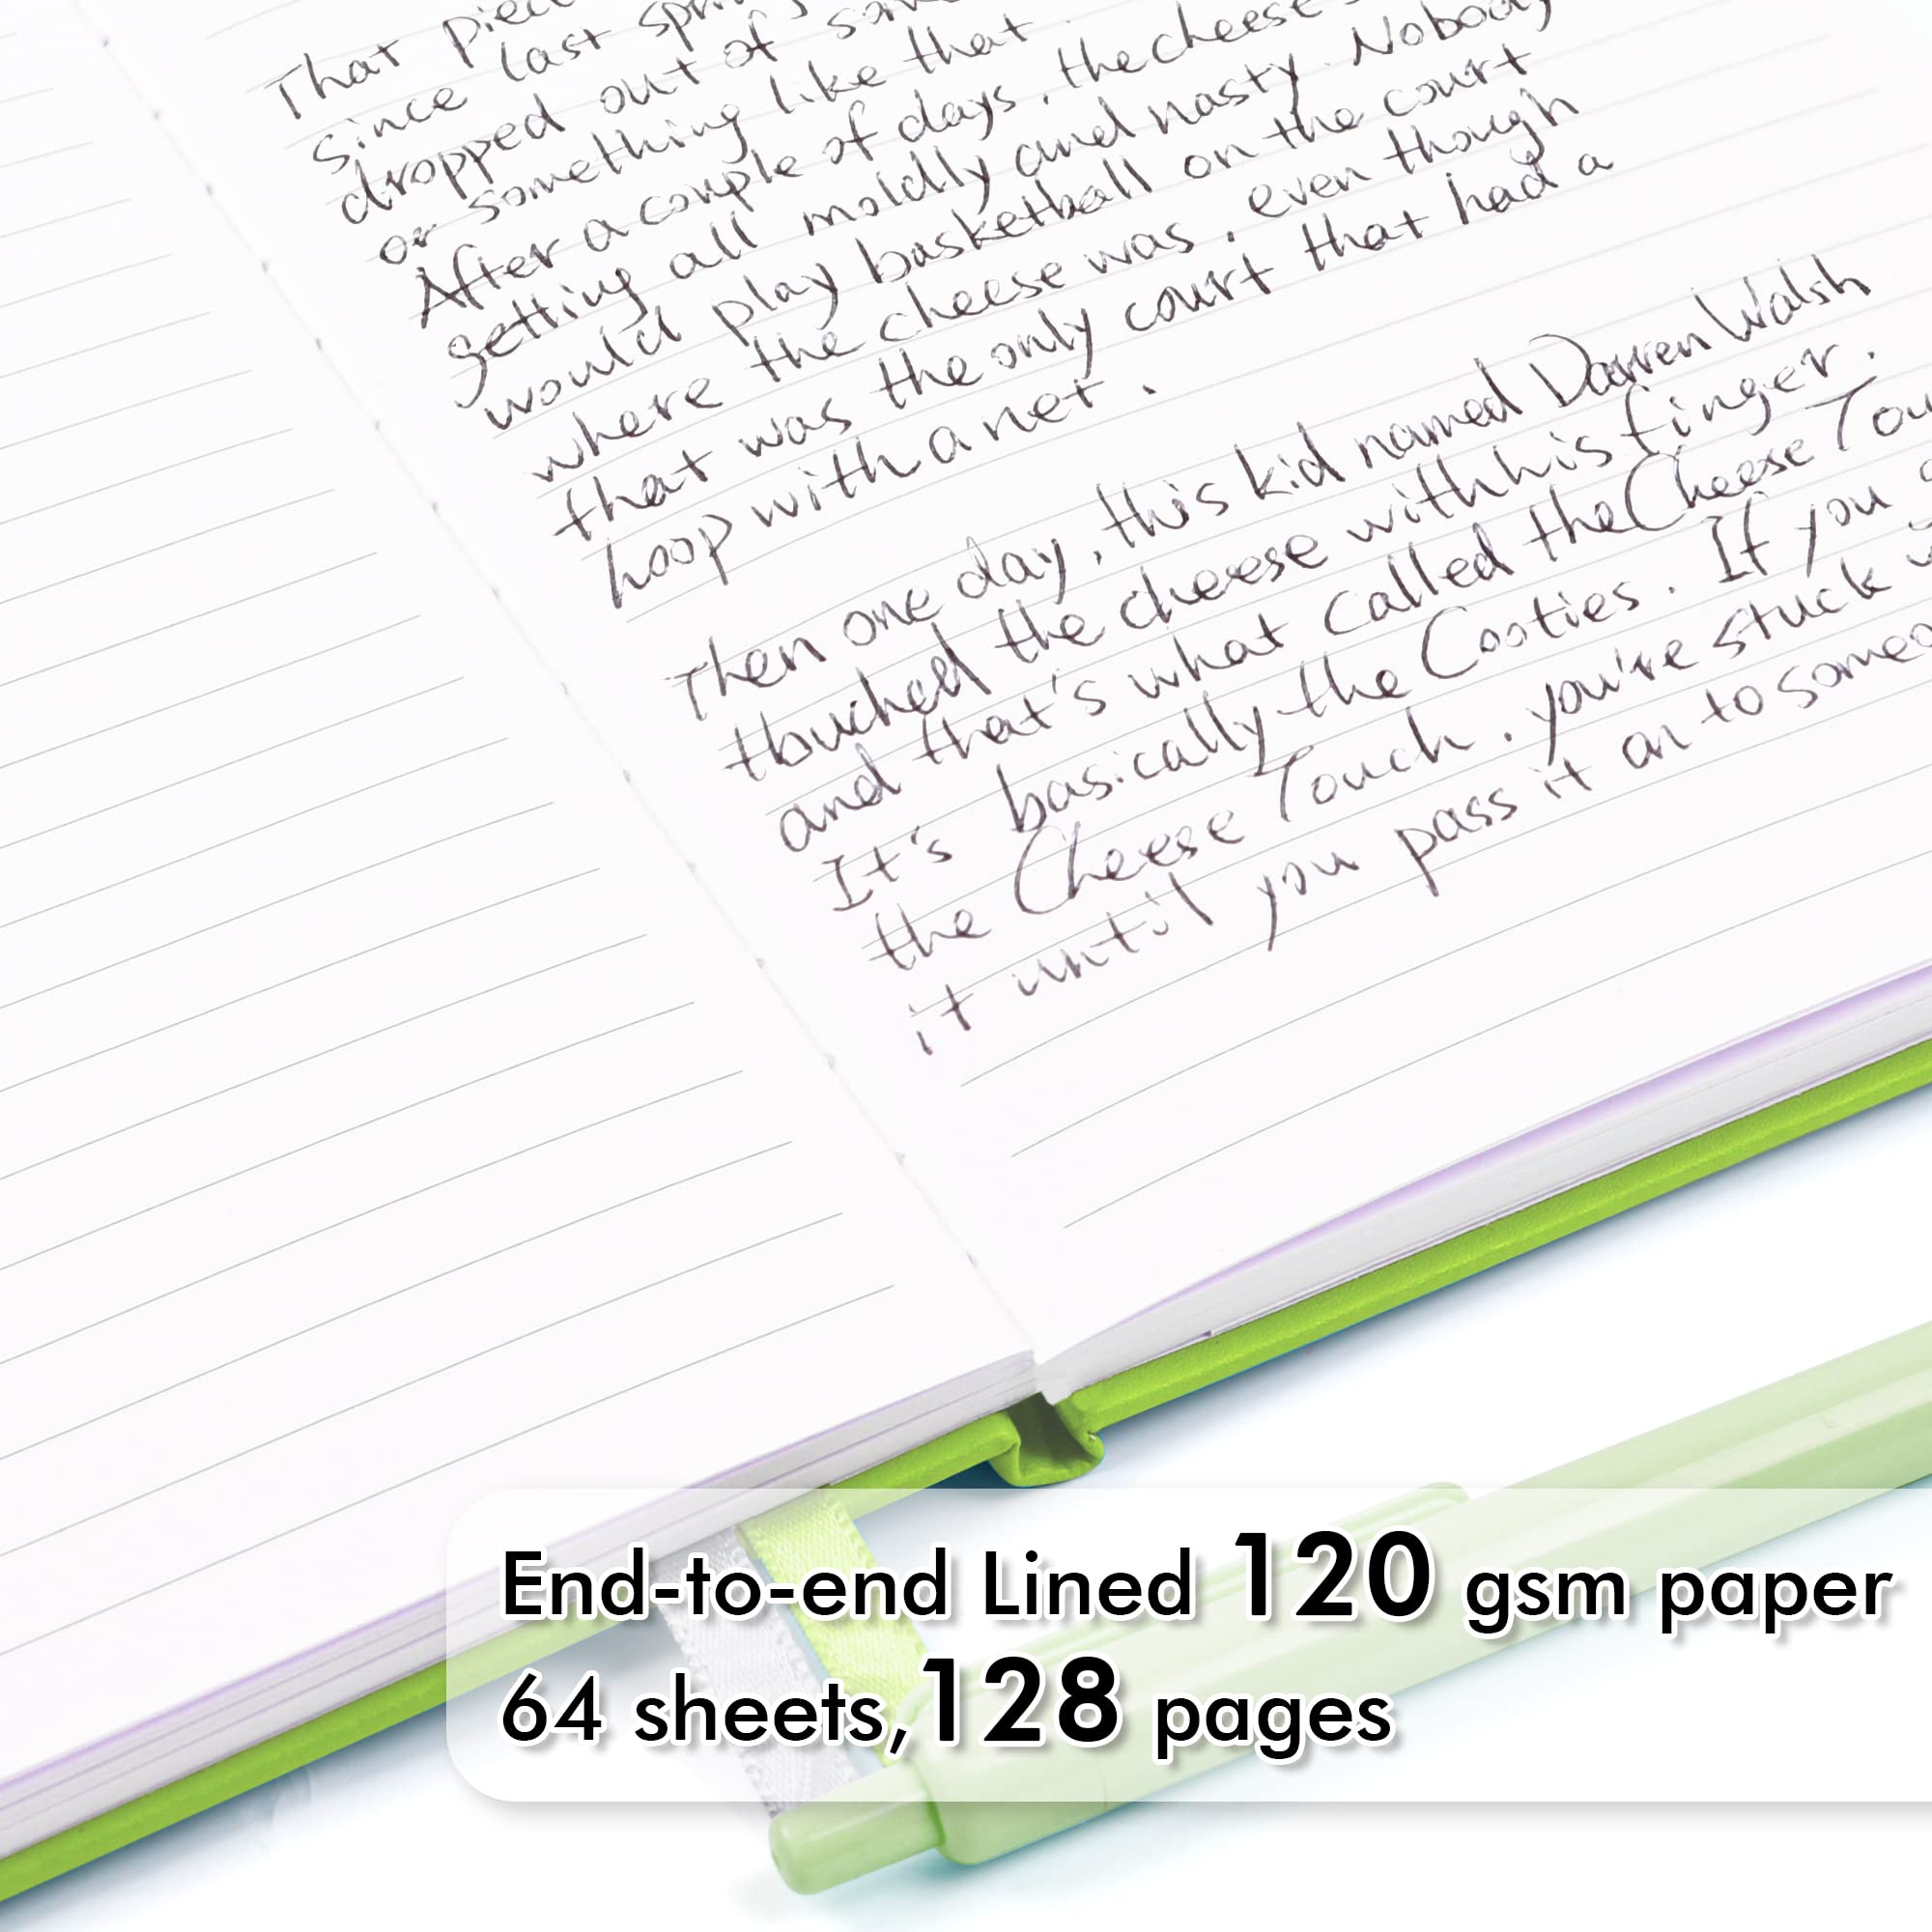 That piec
since last spri
dropped out of
or something like that.
After a couple of days, the cheese
getting all moldly and nasty. Nobody
would play basketball on the court
where the cheese was, even though
that was the only court that had a
hoop with a net.
Then one day, this kid named Darren Walsh
touched the cheese with his finger.
and that's what called the Cheese Tou
It's basically the Cooties. If you
the Cheese Touch, you're stuck
it until you pass it on to someo
End-to-end Lined 120 gsm paper
64 sheets,128 pages